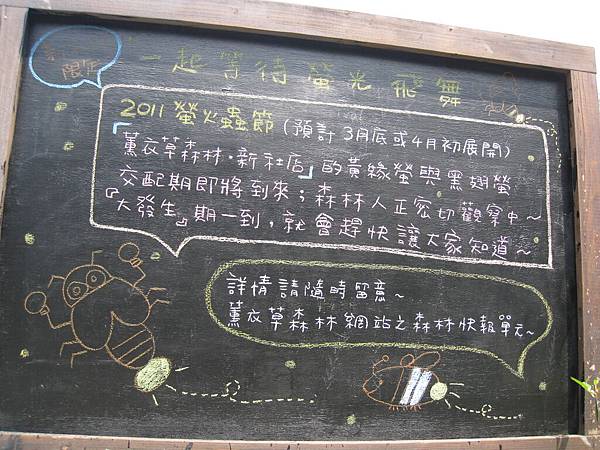 限定
一起等待螢光飛舞
2011 螢火蟲節 (預計 3月底或4月初展開)
「薰衣草森林·新社店」的黃緣螢與黑翅螢
交配期即將到來；森林人正密切觀察中~
『大發生』期一到，就會趕快讓大家知道~
詳情請隨時留意~
薰衣草森林網站之森林快報單元~